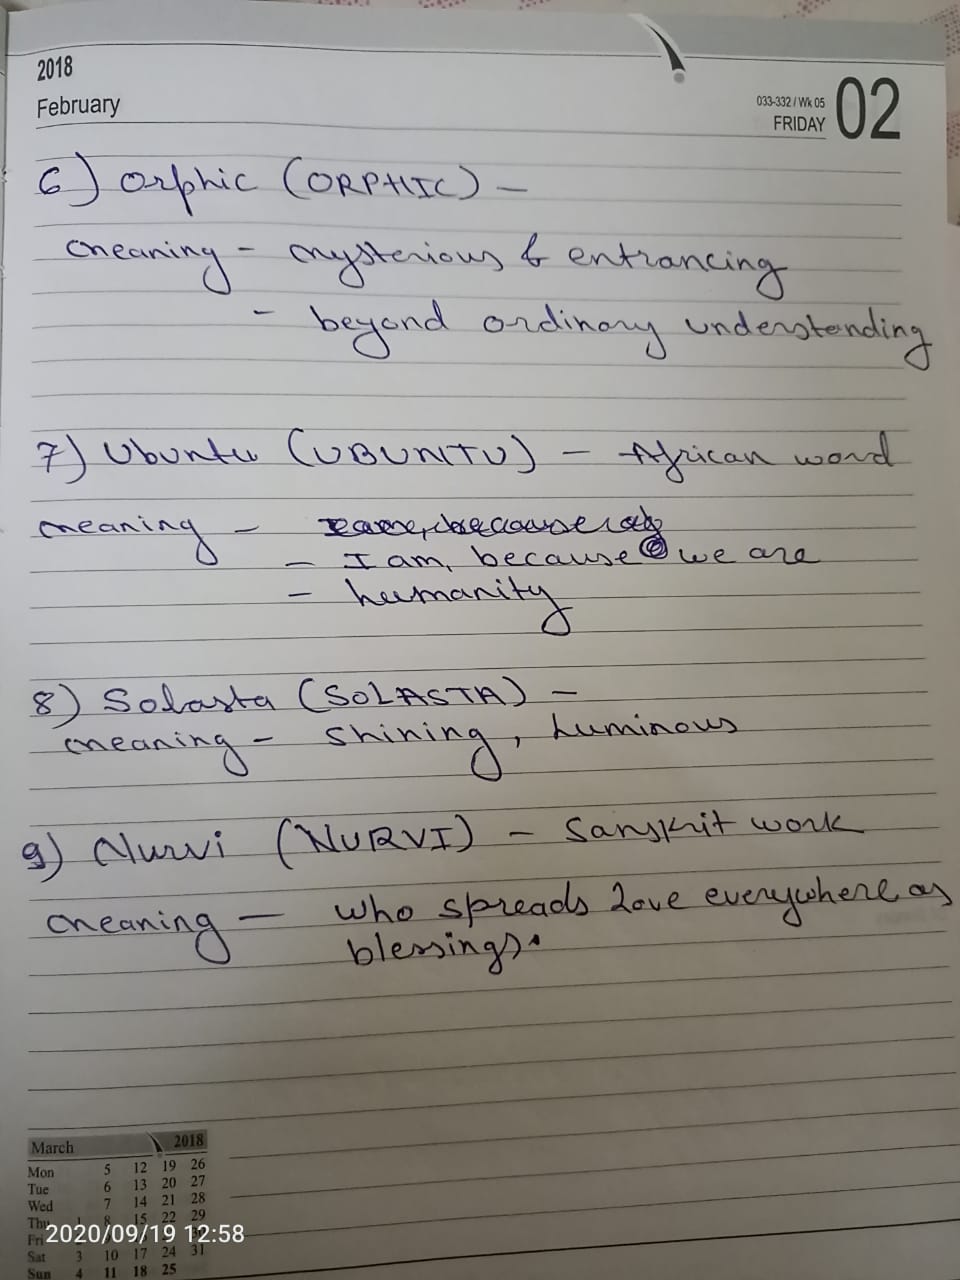 2018
February
033-332 / Wk 05
FRIDAY
02
6) Orphic (ORPHIC) -
meaning - mysterious & entrancing
- beyond ordinary understanding
7) Ubuntu (UBUNTU) - African word
meaning -
- I am, because we are
- humanity
8) Solasta (SOLASTA) -
meaning - shining, luminous
9) Nurvi (NURVI) - Sanskrit work
meaning - who spreads love everywhere as
blessings.
March 2018
Mon 5 12 19 26
Tue 6 13 20 27
Wed 7 14 21 28
Thu 1 8 15 22 29
Fri
2020/09/19 12:58
Sat 3 10 17 24 31
Sun 4 11 18 25